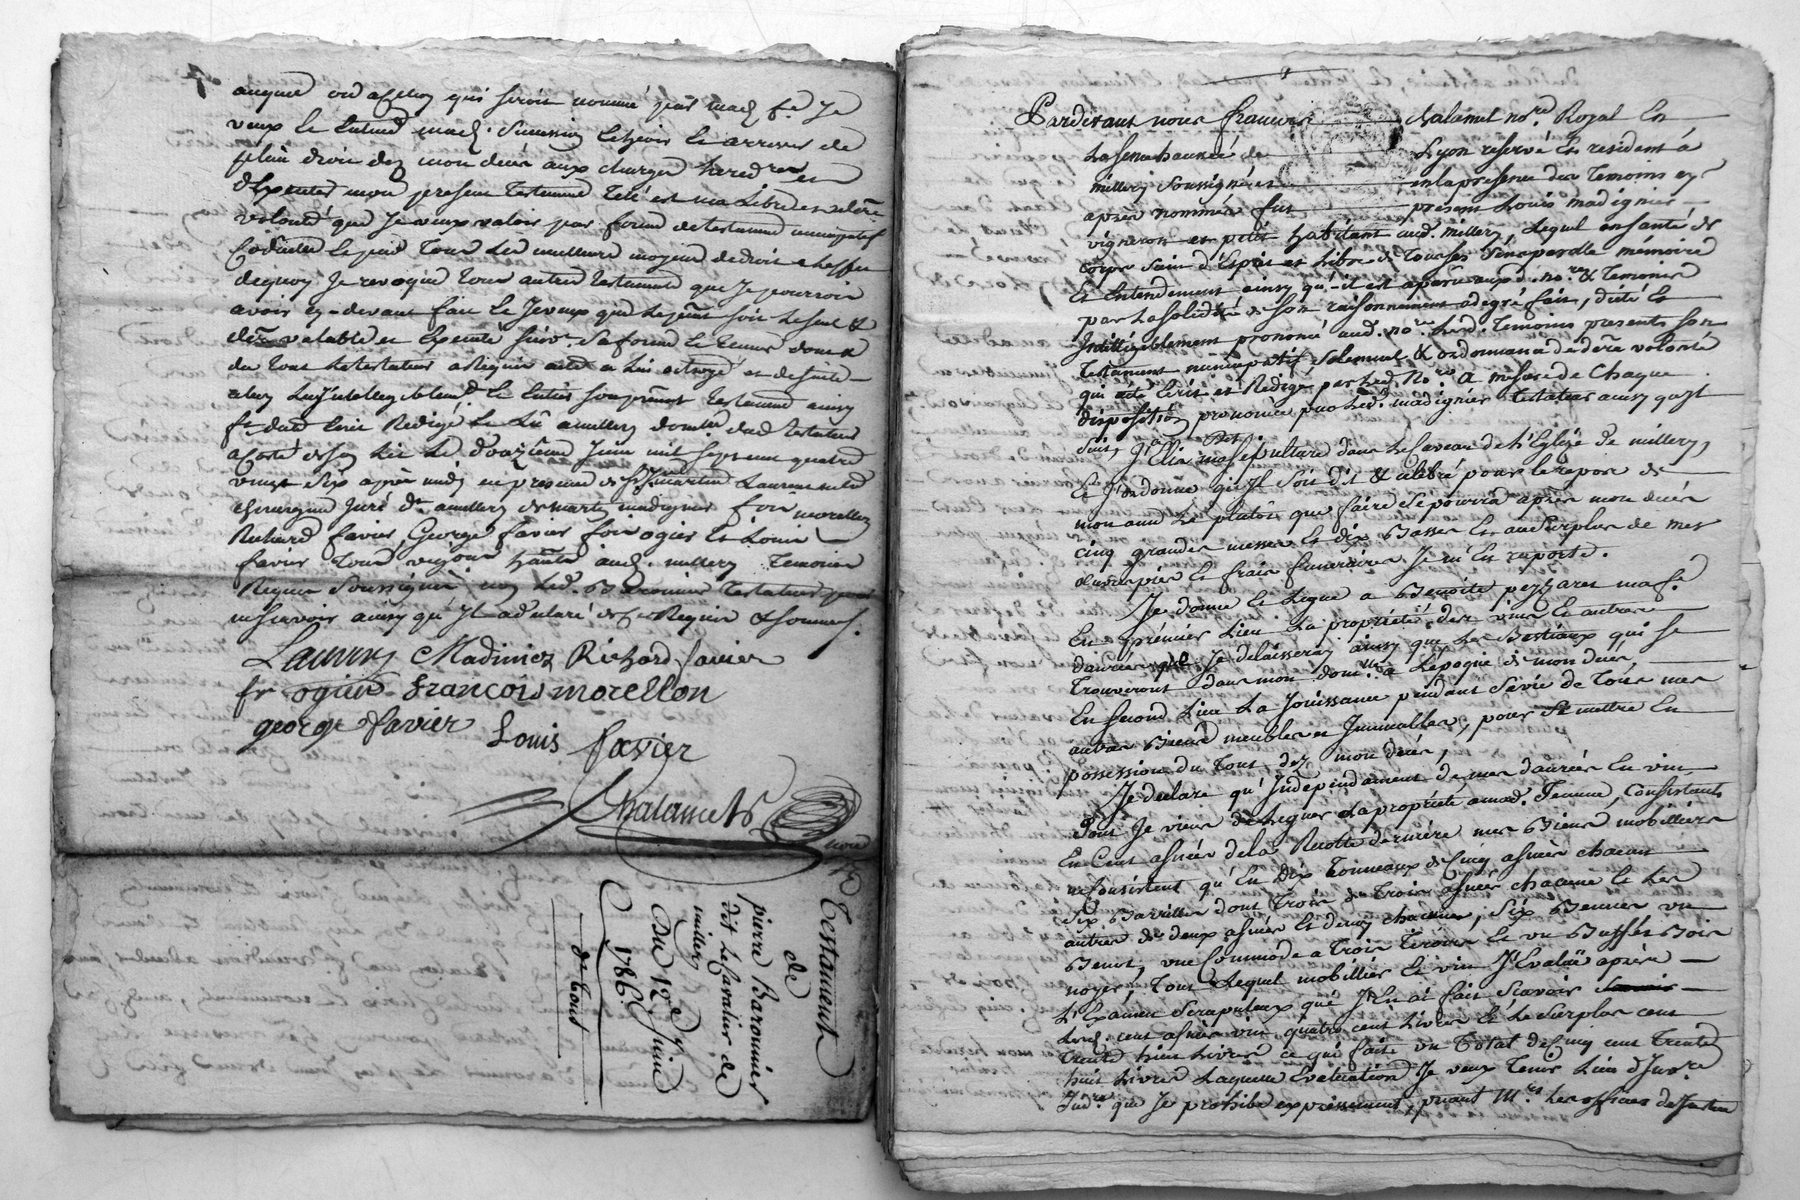 auquel ou à celuy qui seroit nommé par mad. fe. Je
veux le mad. succession
plein droit dez mon decès aux charges hered.res et
d'Executer mon present Testament Tele est ma libre et dere
volonté que Je veux valoir par forme de testament nuncupatif
Codicille et par tous les meilleurs moyens de droit a l'effet
dequoy Je revoque tous autres testaments que Je pourrois
avoir cy-devant fait et Je veux que le present soit le seul &
valable et Executé suivt. Sa forme et teneur dont &
du tout le testateur a Requis acte a lui octroyé et de suite
aluy Lu Intelligiblemt. Le Entier susprésent testament ainsy
fait dicté Ecrit Redigé et Lû a millery domlle. dud testateur
a costé de son lit le douzieme Juin mil sept cent quatre
vingt six après midy en presence de Sr. martin Laurent
chirurgien Juré dt. a millery de martin madignier
Richard favier, George favier fois ogier Et Louis
favier Tous vignons habts aud. millery Temoins
Requis Soussignés non led. Baronnier Testateur pour
ne scavoir ainsy qu'Il a declaré de ce Requis & sommé.
Laurens Madinier Richard favier
fr ogier françois morellon
george favier Louis favier
Chalamel
nore
Testament
de
pierre Baronnier
dit Le Cavalier de
millery
Du 12e Juin
1786
Pardevant nous françois Chalamel nore. Royal En
la senechaussée de Lyon reservé Et residant à
millery soussigné et en la presence des Temoins cy
après nommés fut présent Louis madignier
vigneron et petit habitant aud. millery, Lequel en santé de
corps Sain d'Esprit et libre de Toutes Ses parolle mémoire
Et Entendement ainsy qu'il est aparu aud. nore. & Temoins
par la solidité de Son raisonnement a degré fait, dicté Et
Intelligiblement prononcé aud. nore. & aud. Temoins presents son
Testament nuncupatif solemnel & ordonnance de dere volonté
qui a été Ecrit et Redigé par led. Nore. a mesure de Chaque
disposition prononcée par led. madignier testateur ainsy qu'Il
Suit, J'Elis ma sepulture dans le caveau de L'Eglise de millery,
Et J'ordonne qu'Il soit dit & célébré pour le repos de
mon ame le plutôt que faire se pourra après mon decès
cinq grandes messes Et dix Basses Et au Surplus de mes
obsèques et frais funeraires Je m'En raporte.
Je donne & Legue a Benoite pezzaret ma fe.
En premier Lieu la propriété des vins et autres
danrées que Je delaisserai ainsy que les Bestiaux qui se
Trouveront dans mon domlle. à l'époque de mon decès,
En second Lieu La Jouissance pendant sa vie de Tous mes
autres Biens meubles et Immeubles, pour se mettre En
possession du Tout dez mon decès,
Je declare qu'Independament de mes danrées En vin
dont Je viens de leguer la propriété a mad. femme, Consistants
En Cent asnées de la Recolte derniére mes Biens mobilliérs
ne consistent qu'En dix tonneaux de Cinq asnées chacun
Six Barrilles dont Trois de Trois asnées chacune Et les
autres de deux asnées Et demy chacunes, Six Bennes un
Benot, une Commode a Trois Tiroirs Et un Buffet Bois
noyer, Tout Lequel mobillier Et vin J'Evalue après
L'Examen Scrupuleux que J'En ai fait Scavoir
Lesd. cent asnées vin quatre cent Livres Et Le Surplus cent
Trente huit Livres ce qui fait un Total de Cinq cent Trente
huit Livres Laquelle Evaluation Je veux Tenir Lieu d'Invre.
Judre. que Je prohibe expressement, priant Mrs. Les officiers de Justice